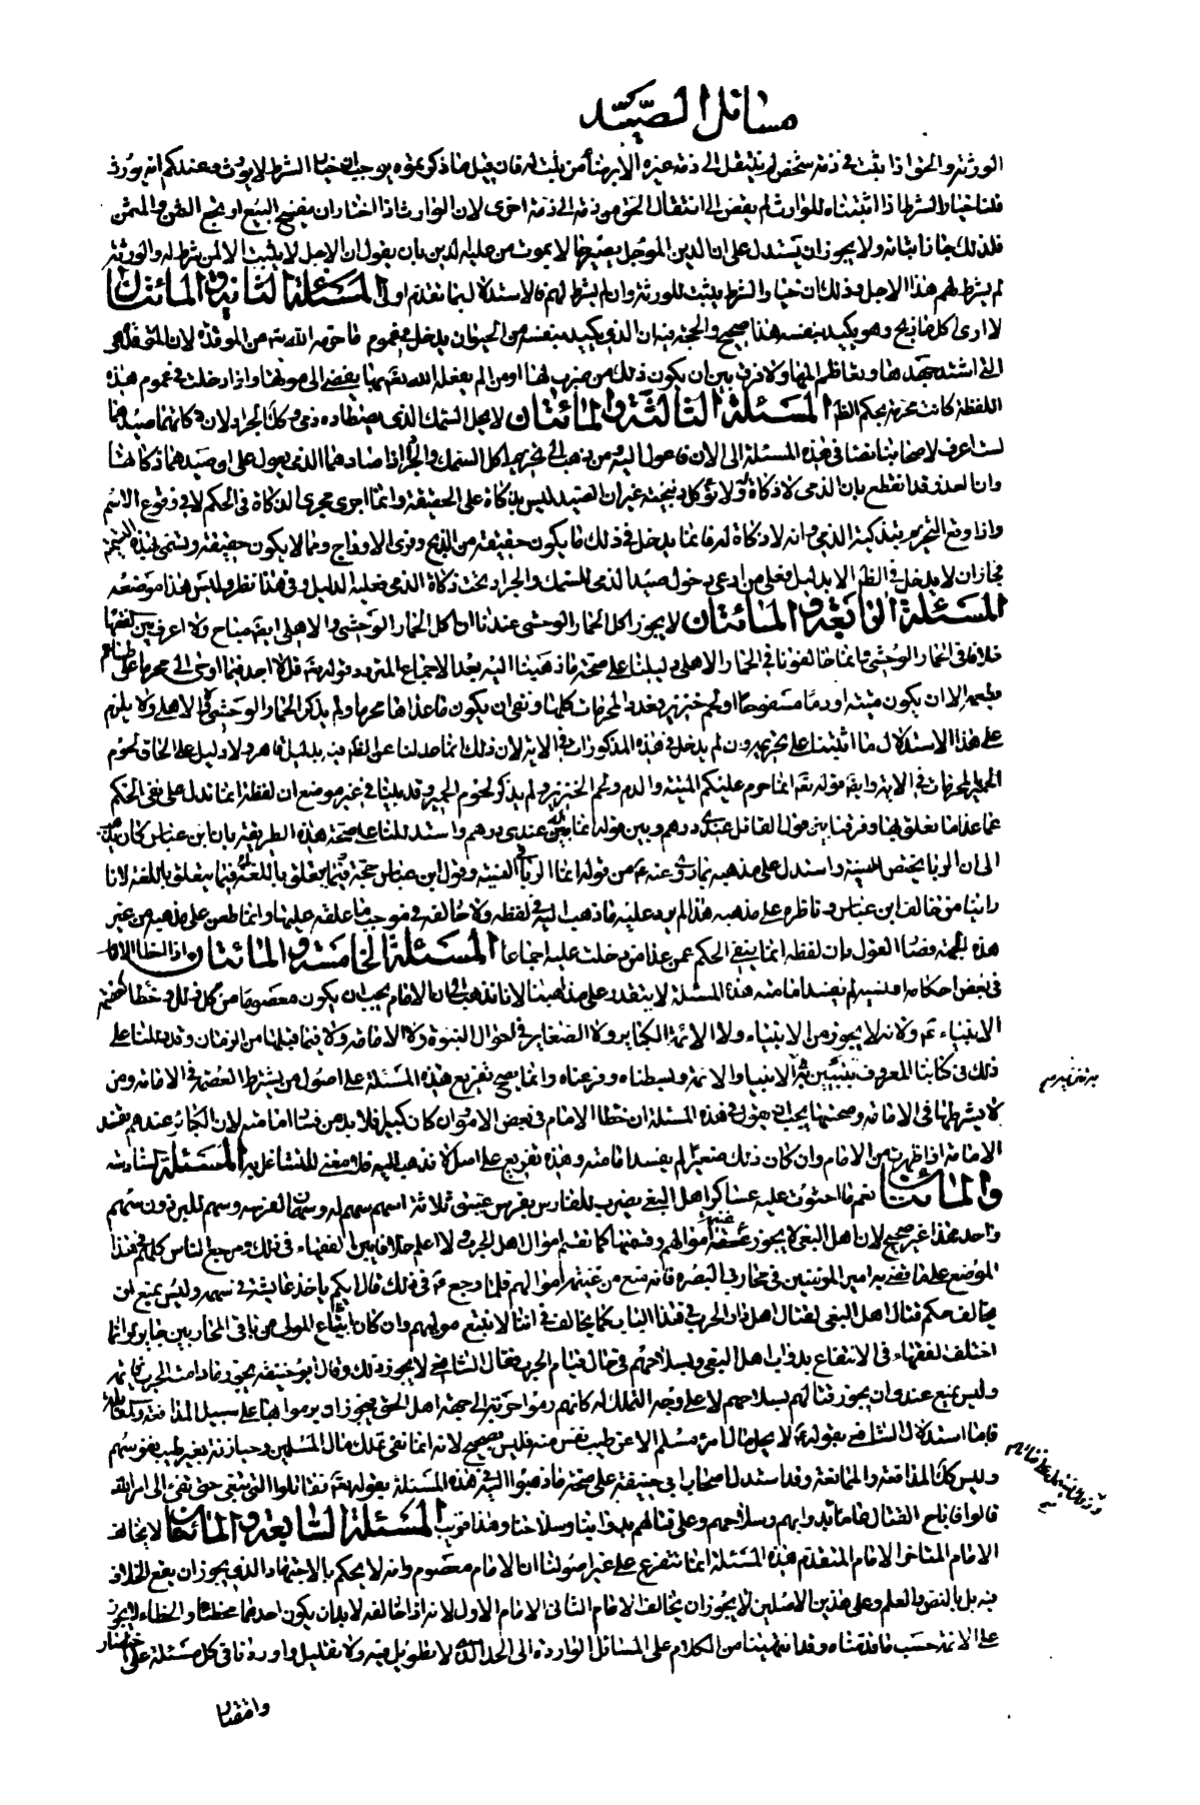 مسائل الصيد
الورثة والحق اذا يثبت في ذمة شخص لم ينتقل الى ذمة غيره الا برضا من يثبت له فان قيل ما ذكرتموه يوجب ان خيار الشرط لا يورث وعندكم انه يورث
قلنا خيار الشرط اذا اثبتناه للوارث لم يفض الى انتقال الحق من ذمة الى ذمة اخرى لان الوارث اذا اختار ان يفسخ البيع او الثمن والمثمن
فلذلك جاز اثباته ولا يجوز ان يستدل على ان الدين المؤجل لا يموت من عليه الدين بان يقول ان الاجل لا يثبت الا لمن شرط له والورثة
لم يشرط لهم هذا الاجل وذلك ان خيار الشرط يثبت للورثة وان لم يشرط لهم فالاستدلال بما تقدم اولى المسئلة الثانية والمائتان
لا ارى اكل ما ذبح وهو يكيد بنفسه هذا صحيح والحجة فيه ان الذي يكيد بنفسه من الحيوان يدخل في عموم ما حرمه الله تع من الموقوذة لان الموقوذة هي
التي اشتد جهدها وتعاظم المها ولا فرق بين ان يكون ذلك من ضرب لها او من الم يفعله الله تع بها يفضي الى موتها واذا دخلت في عموم هذه
اللفظة كانت محرمة بحكم الظ المسئلة الثالثة والمائتان لا يحل السمك الذي يصطاده ذمي وكك الجراد لان ذكاتهما صيدهما
لست اعرف لاصحابنا نصا في هذه المسئلة الى الان فاعول اليه ومن ذهب الى تحريم اكل السمك والجراد اذا صادهما الذمي يعول على ان صيدهما ذكاتهما
وان العذر قد انقطع بان الذمي لا ذكاة له ولا تؤكل ذبيحته غير ان الصيد ليس بذكاة على الحقيقة وانما اجرى مجرى الذكاة في الحكم لا في وقوع الاسم
واذا وقع التحريم بتذكية الذمي وانه لا ذكاة له فانما يدخل في ذلك ما يكون حقيقة من الذبح وفري الاوداج وما لا يكون حقيقة ويسمى بهذه التسمية
مجازا ان لا يدخل في الظ الا بدليل فعلى من ادعى دخول صيد الذمي للسمك والجراد تحت ذكاة الذمي فعليه الدليل وفي هذا نظر وليس هذا موضعه
المسئلة الرابعة والمائتان لا يجوز اكل الحمار الوحشي عندنا ان اكل الحمار الوحشي والاهلي ايضا مباح ولا اعرف بين الفقهاء
خلافا في الحمار الوحشي وانما خالفونا في الحمار الاهلي دليلنا على صحة ما ذهبنا اليه بعد الاجماع المتردد قوله تع قل لا اجد فيما اوحي الي محرما على طاعم
يطعمه الا ان يكون ميتة او دما مسفوحا او لحم خنزير فعدد المحرمات كلها ونفى ان يكون ما عداها محرما ولم يذكر الحمار الوحشي ولا الاهلي ولا يلزم
على هذا الاستدلال ما اثبتنا على تحريمه وان لم يدخل في هذه المذكورات في الاية لان ذلك انما عدلنا عن الظ فيه بدليل قاهر ولا دليل على الحاق لحوم
الحمير بالمحرمات في الاية وايضا قوله تع انما حرم عليكم الميتة والدم ولحم الخنزير ولم يذكر لحوم الحمير وقد بينا في غير موضع ان لفظة انما تدل على نفي الحكم
عما عدا ما تعلق بها وفرقنا بين قول القائل عندي درهم وبين قوله انما عندي درهم واستدللنا على صحة هذه الطريقة بان ابن عباس كان يذهب
الى ان الربا يختص النسية واستدل على مذهبه بما روي عنه ع من قوله انما الربا في النسية وقول ابن عباس حجة فيما يتعلق باللغة لانا
راينا من خالف ابن عباس وناظره على مذهبه هذا لم يرد عليه ما ذهب اليه في لفظه ولا خالفه في موجب ما علقه عليها وانما طعن على مذهبه من غير
هذه الجهة وصار القول بان لفظة انما ينفي الحكم عمن عدا من دخلت عليه اجماعا المسئلة الخامسة والمائتان واذا اخطا الامام
في بعض احكامه او نسيه لم يفسد امامته هذه المسئلة لا يتقدر على مذاهبنا لانا نذهب الى ان الامام يجب ان يكون معصوما من كل زلل وخطا كعصمة
الانبياء ع ولانه لا يجوز من الانبياء ولا الائمة الكبائر ولا الصغائر في احوال النبوة ولا الامامة ولا فيما قبلها من الزمان وقد دللنا على
ذلك في كتابنا المعروف بتنزيه الانبياء والائمة وبسطناه وفرعناه وانما يصح تفريع هذه المسئلة على اصول من يشترط العصمة في الامامة ومن
لا يشرطها في الامامة وصحتها يجب ان يقول في هذه المسئلة ان خطا الامام في بعض الامور ان كان كبيرا فلا بد من فساد امامته لان الكبائر عندهم يفسد
الامامة اذا ظهرت من الامام وان كان ذلك صغيرا لم يفسد امامته وهذه تفريع على اصل لا نذهب اليه فلا معنى للتشاغل به المسئلة السادسة
والمائتان نعم ما احتوت عليه عساكر اهل البغي يضرب للفارس بفرس عتيق ثلاثة اسهم سهم له وسهمان لفرسه وسهم للبرذون سهم
واحد هذا غير صحيح لان اهل البغي لا يجوز غنيمة اموالهم وقسمتها كما تقسم اموال اهل الحرب ولا اعلم خلافا بين الفقهاء في ذلك ومرجع الناس كلهم في هذا
الموضع على ما قضى به امير المؤمنين في محاربي البصرة فانه منع من غنيمة اموالهم فلما روجع ع في ذلك قال ايكم ياخذ عايشة في سهمه وليس يمتنع ان
يخالف حكم قتال اهل البغي لقتال اهل دار الحرب في هذا الباب كما يخالف في اننا لا نتبع موليهم وان كان اتباع المولى من باقي المحاربين جايزا وانما
اختلف الفقهاء في الانتفاع بدواب اهل البغي وبسلاحهم في حال قيام الحرب فقال الشافعي لا يجوز ذلك وقال ابو حنيفة يجوز ما دامت الحرب قايمة
وليس يمتنع عندي ان يجوز قتالهم بسلاحهم لا على وجه التملك له كانهم رموا حربة الى جهة اهل الحق فيجوز ان يرموا بها على سبيل المدافعة والمقاتلة
فاما استدلال الشافعي بقوله ع لا يحل مال امرء مسلم الا عن طيب نفس منه فليس بصحيح لانه انما نفى تملك مال المسلمين وحيازته بغير طيب نفوسهم
وليس كك المدافعة والممانعة وقد استدل اصحاب ابي حنيفة على صحة ما ذهبوا اليه في هذه المسئلة بقوله تع فقاتلوا التي تبغي حتى تفئ الى امر الله
قالوا فاباح القتال عاما بدوابهم وسلاحهم وعلى قتالهم بدوابنا وسلاحنا وهذا قريب المسئلة السابعة والمائتان لا يخالف
الامام المتاخر الامام المتقدم هذه المسئلة انما تتفرع على غير اصولنا ان الامام معصوم وانه لا يحكم بالاجتهاد الذي يجوز ان يقع الخلاف
فيه بل بالنص والعلم وعلى هذين الاصلين لا يجوز ان يخالف الامام الثاني الامام الاول لانه اذا خالفه لا بد ان يكون احدهما مخطئا والخطاء لا يجوز
على الائمة حسب ما قدمناه وقد انتهينا من الكلام على المسائل الواردة الى الحد الذي لا تطويل فيه ولا تقليل واوردنا في كل مسئلة على اختصار
وافقنا